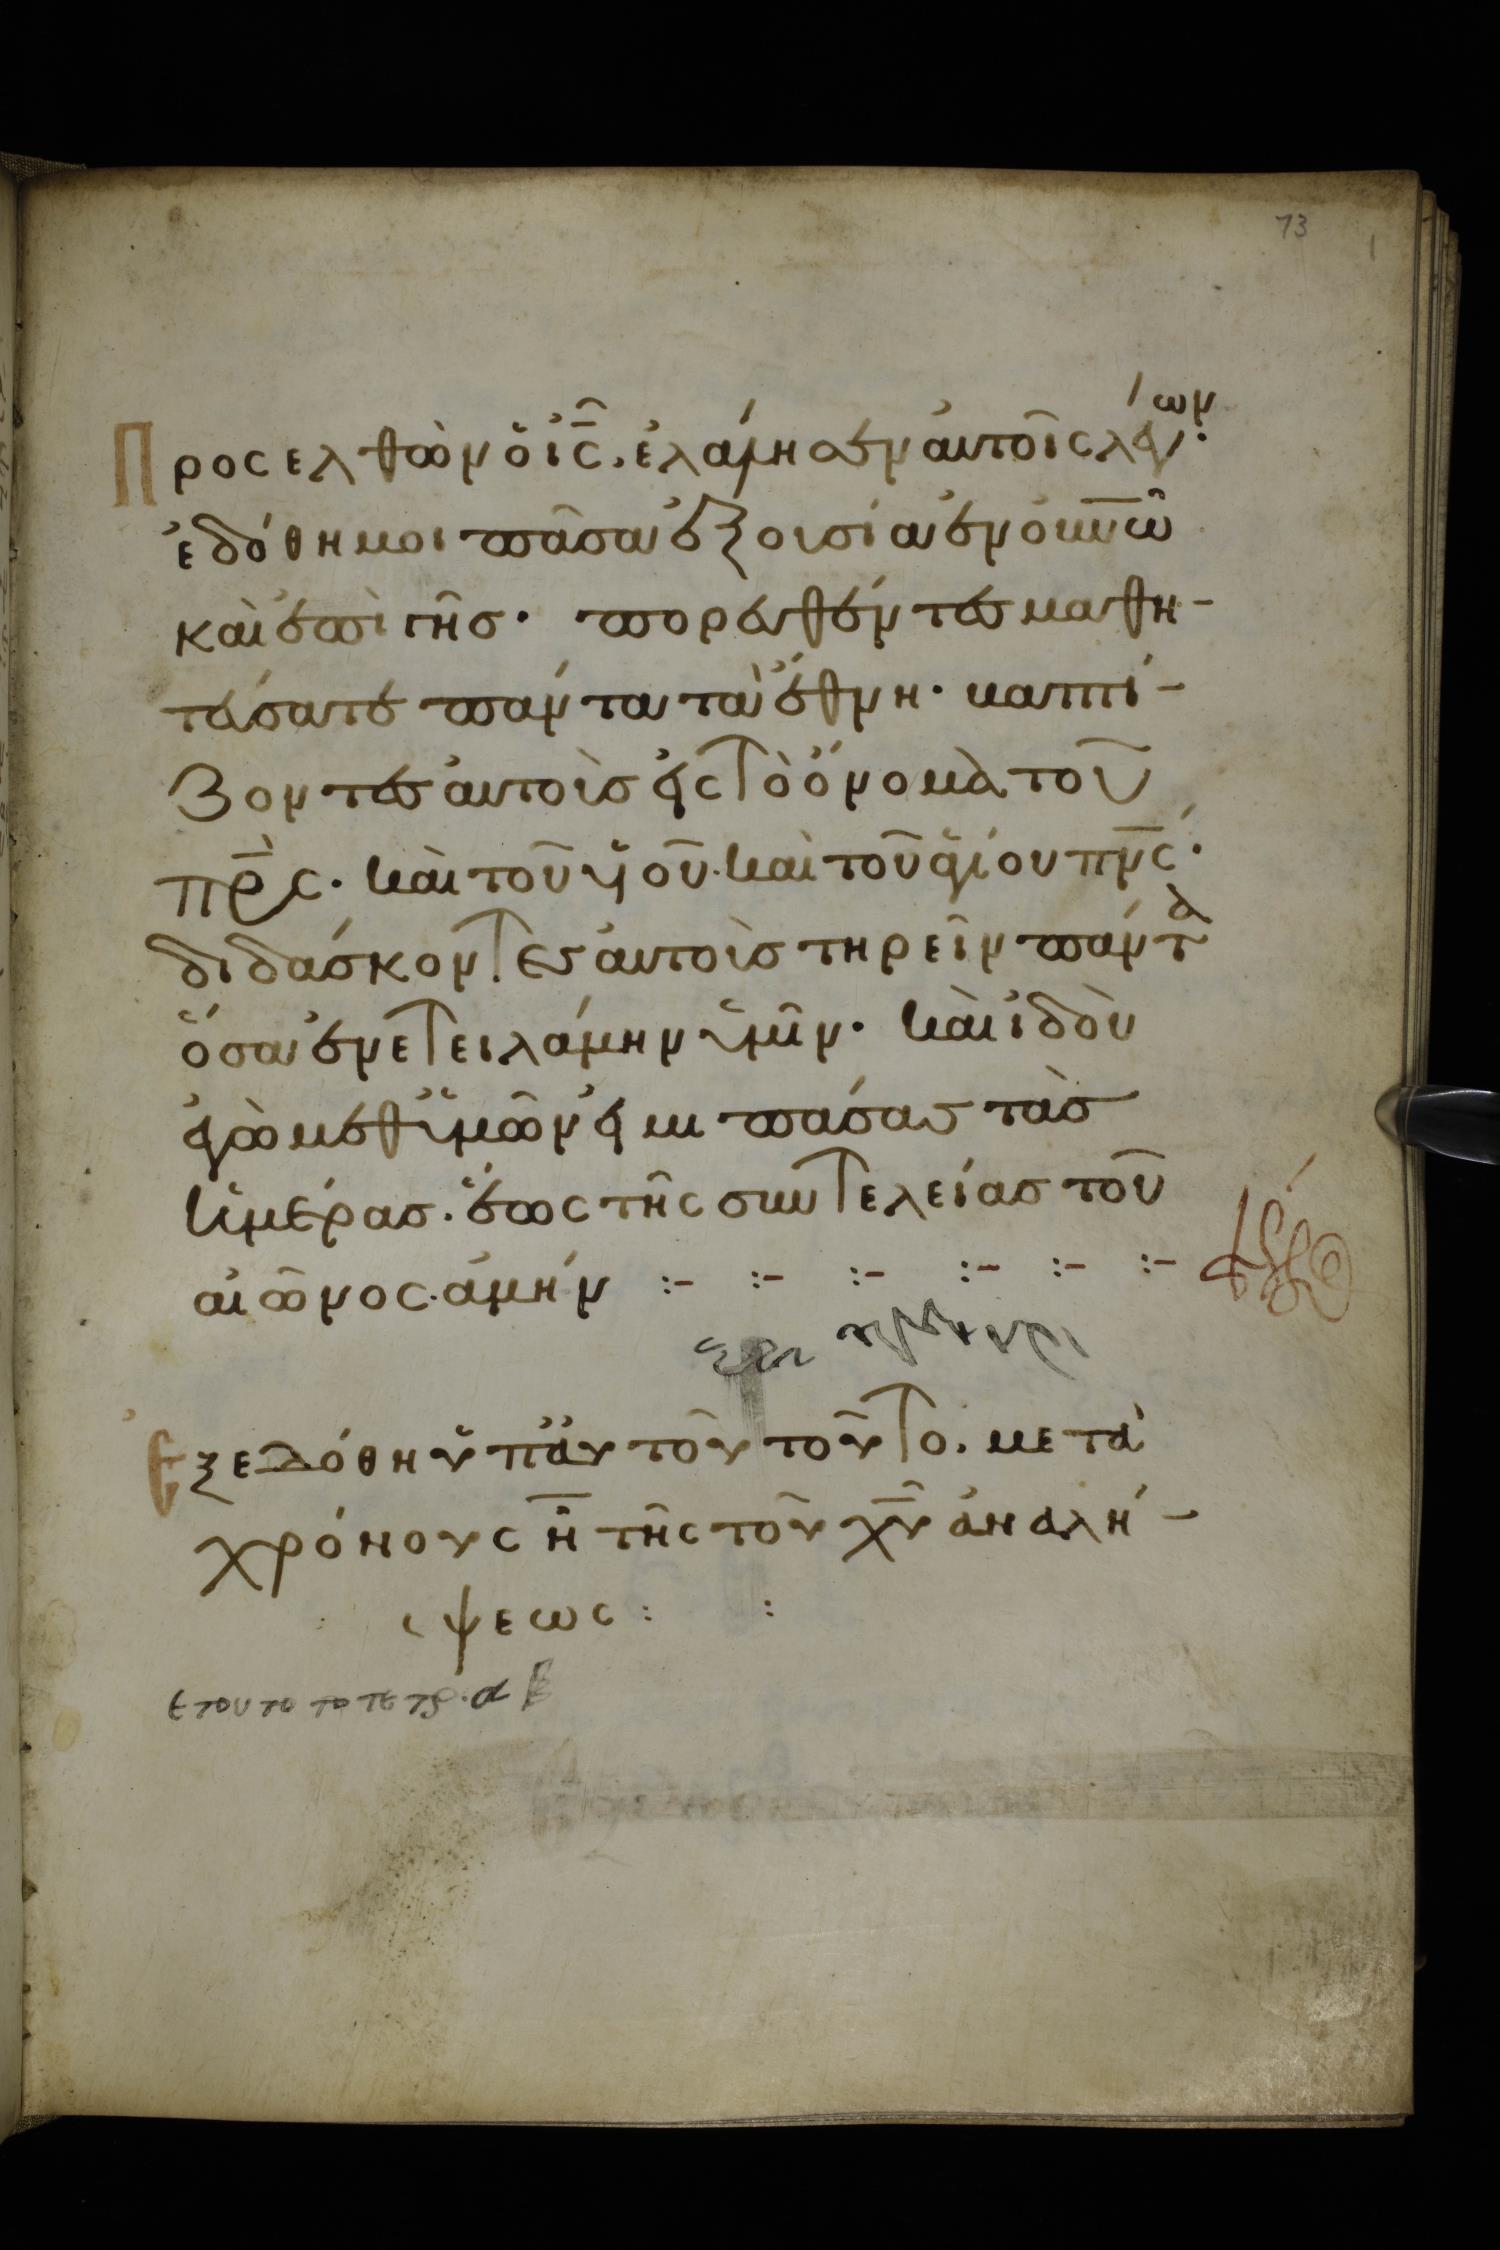 73
Προσελθὼν ὁ ἰ̅ς̅. ἐλάλησεν αὐτοῖς λέγων·
ἐδόθη μοι πᾶσα ἐξουσία ἐν ο̅υ̅ν̅ῶ̅
καὶ ἐπὶ γῆς· πορευθέντες μαθη-
τεύσατε πάντα τὰ ἔθνη· βαπτί-
ζοντες αὐτοὺς εἰς τὸ ὄνομα τοῦ
π̅ρ̅ς̅· καὶ τοῦ υἱοῦ· καὶ τοῦ ἁγίου π̅ν̅ς̅·
διδάσκοντες αὐτοὺς τηρεῖν πάντα
ὅσα ἐνετειλάμην ὑμῖν· καὶ ἰδοὺ
ἐγὼ μεθ ὑμῶν εἰμι πάσας τὰς
ἡμέρας· ἕως τῆς συντελείας τοῦ
αἰῶνος· ἀμήν :- :- :- :- :- :-
ἐξεδόθη ὑπ αυτοῦ τοῦτο. μετὰ
χρόνους η̅ τῆς τοῦ χ̅υ̅ ἀναλή-
ψεως : :